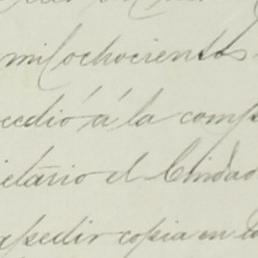 mil ochocientos
cedió á la comp
ietario el Ciudad
spedir copia en